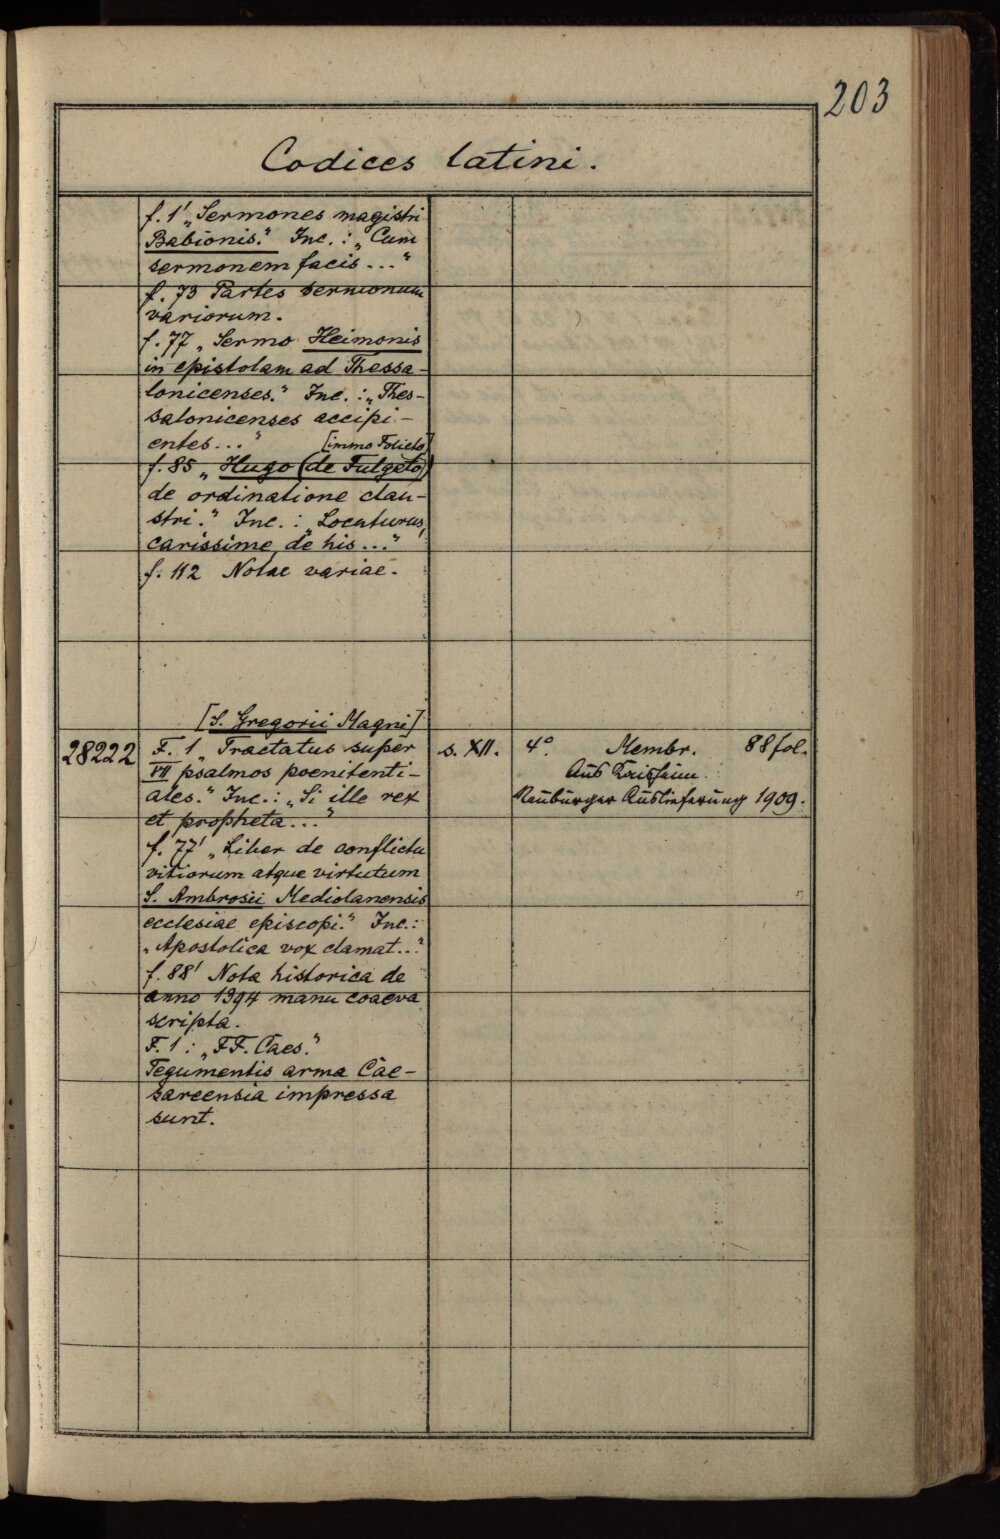 203
Codices latini.
f. 1' „Sermones magistri
Babionis." Inc.: „Cum
sermonem facis ..."
f. 73 Partes sermonum
variorum.
f. 77 „Sermo Heimonis
in epistolam ad Thessa-
lonicenses." Inc.: „Thes-
salonicenses accipi-
entes ..." [immo Folieto]
f. 85 „Hugo (de Fulgeto)
de ordinatione clau-
stri." Inc.: „Locuturus,
carissime, de his ..."
f. 112 Notae variae.
[S. Gregorii Magni]
28222 F. 1 „Tractatus super s. XII. 4° Membr. 88 fol.
VII psalmos poenitenti- Aus Kaisheim.
ales." Inc.: „Si ille rex Neuburger Auslieferung 1909.
et propheta ..."
f. 77' „Liber de conflictu
vitiorum atque virtutum
S. Ambrosii Mediolanensis
ecclesiae episcopi." Inc.:
„Apostolica vox clamat..."
f. 88' Nota historica de
anno 1394 manu coaeva
scripta.
F. 1: „FF. Caes."
Tegumentis arma Cae-
sareensia impressa
sunt.